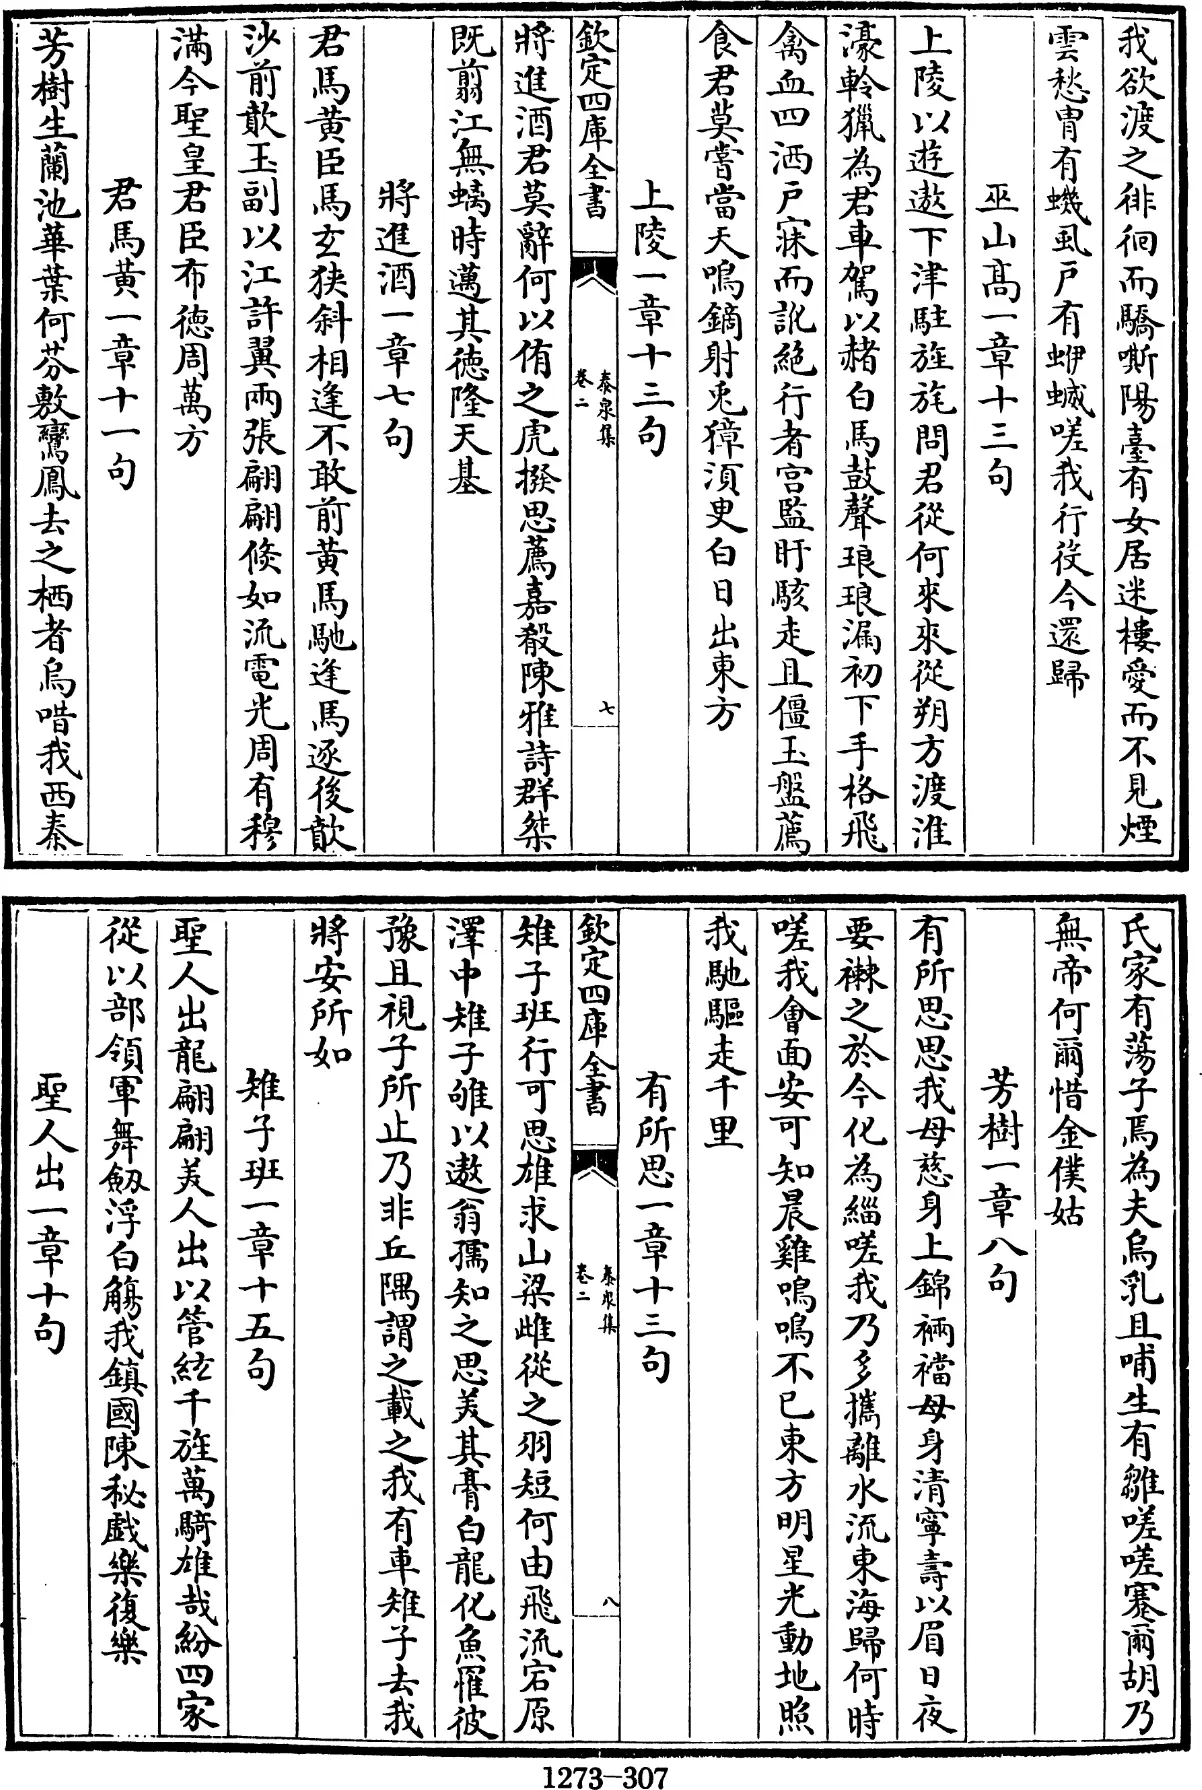 我欲渡之徘徊而驕嘶陽臺有女居迷樓愛而不見煙
雲愁胄有蟣虱戶有蛜蝛嗟我行役今還歸
巫山髙一章十三句
上陵以遊遨下津駐旌旄問君從何來來從朔方渡淮
濠軨獵為君車駕以赭白馬鼓聲琅琅漏初下手格飛
禽血四洒戶寐而訛絕行者宫監盱駭走且僵玉盤薦
食君莫嘗當天鳴鏑射兎獐湏臾白日出東方
上陵一章十三句
欽定四庫全書
泰泉集
卷二
七
將進酒君莫辭何以侑之虎撥思薦嘉殽陳雅詩群桀
既翦江無螭時邁其徳隆天基
將進酒一章七句
君馬黄臣馬玄狹斜相逢不敢前黄馬馳逢馬逐後歕
沙前歕玉副以江許翼兩張翩翩倐如流電光周有穆
滿今聖皇君臣布徳周萬方
君馬黄一章十一句
芳樹生蘭池華葉何芬敷鸞鳳去之栖者烏唶我西秦
氏家有蕩子焉為夫烏乳且哺生有雛嗟嗟蹇爾胡乃
無帝何爾惜金僕姑
芳樹一章八句
有所思思我母慈身上錦裲襠母身清寧壽以眉日夜
要襋之於今化為緇嗟我乃多攜離水流東海歸何時
嗟我會面安可知晨雞鳴鳴不已東方明星光動地照
我馳驅走千里
有所思一章十三句
欽定四庫全書
泰泉集
卷二
八
雉子班行可思雄求山梁雌從之羽短何由飛流宕原
澤中雉子雊以遨翁孺知之思美其膏白龍化魚罹彼
豫且視子所止乃非丘隅謂之載之我有車雉子去我
將安所如
雉子班一章十五句
聖人出龍翩翩美人出以管絃千旌萬騎雄哉紛四家
從以部領軍舞劔浮白觴我鎮國陳秘戱樂復樂
聖人出一章十句
1273-307